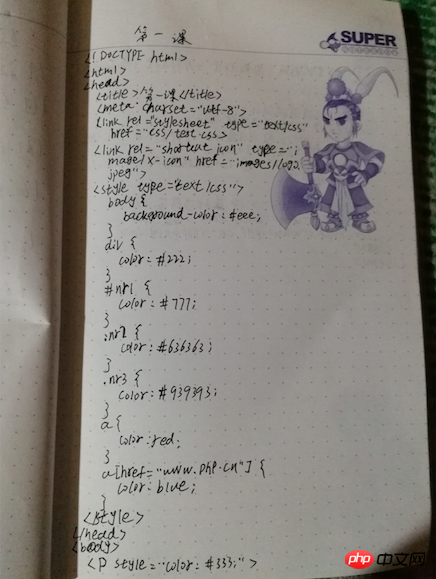 SUPER
第一课
<!DOCTYPE html>
<html>
<head>
<title>第一课</title>
<meta charset="utf-8">
<link rel="stylesheet" type="text/css"
href="css/test.css>
<link rel="shortcut icon" type="i
mage/x-icon" href="images/logo.
jpeg">
<style type="text/css">
body {
background-color: #eee;
}
div {
color: #222;
}
#nr1 {
color: #777;
}
.nr2 {
color: #636363;
}
.nr3 {
color: #939393;
}
a {
color: red;
}
a[href="www.php.cn"] {
color: blue;
}
<style>
</head>
<body>
<p style="color: #333;">
php中文网